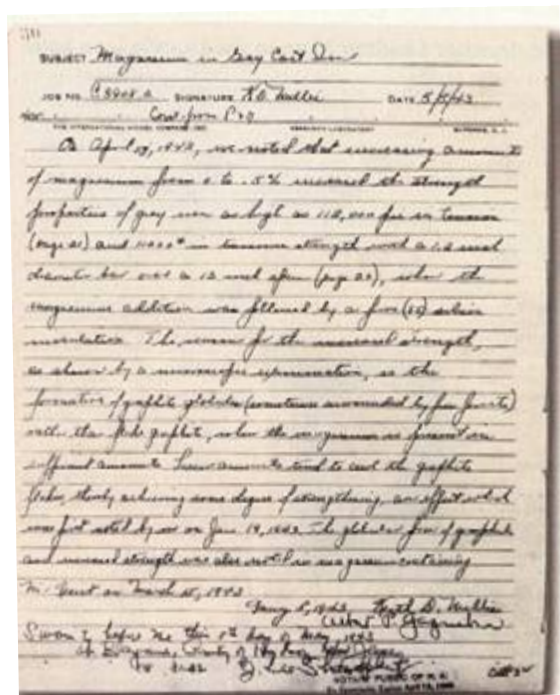 SUBJECT Magnesium in Gray Cast Iron
JOB NO. SIGNATURE K D Millis DATE 5/5/43
Cont. from P 29
THE INTERNATIONAL NICKEL COMPANY, INC. RESEARCH LABORATORY BAYONNE, N. J.
On April 1943, we noted that increasing amounts
of magnesium from 0 to .5% increased the strength
properties of gray iron as high as 112,000 psi in tension
(page 21) and in transverse strength with a 1.2 inch
diameter bar over a 12 inch span (page 23), when the
magnesium addition was followed by a silicon
inoculation. The reason for the increased strength,
as shown by a microscopic examination, is the
formation of graphite globules (sometimes surrounded by free ferrite)
rather than flake graphite, when the magnesium is present in
sufficient amounts. amounts tend to curl the graphite
flakes, thereby achieving some degree of strengthening, an effect which
was first noted by us on 1942. The globular form of graphite
and increased strength was also noted in magnesium containing
on March 1943
May 5, 1943 Keith D. Millis
Albert P. Gagnebin
Sworn to before me this 5th day of May, 1943
at Bayonne, County of Hudson, New Jersey
NOTARY PUBLIC OF N. J.